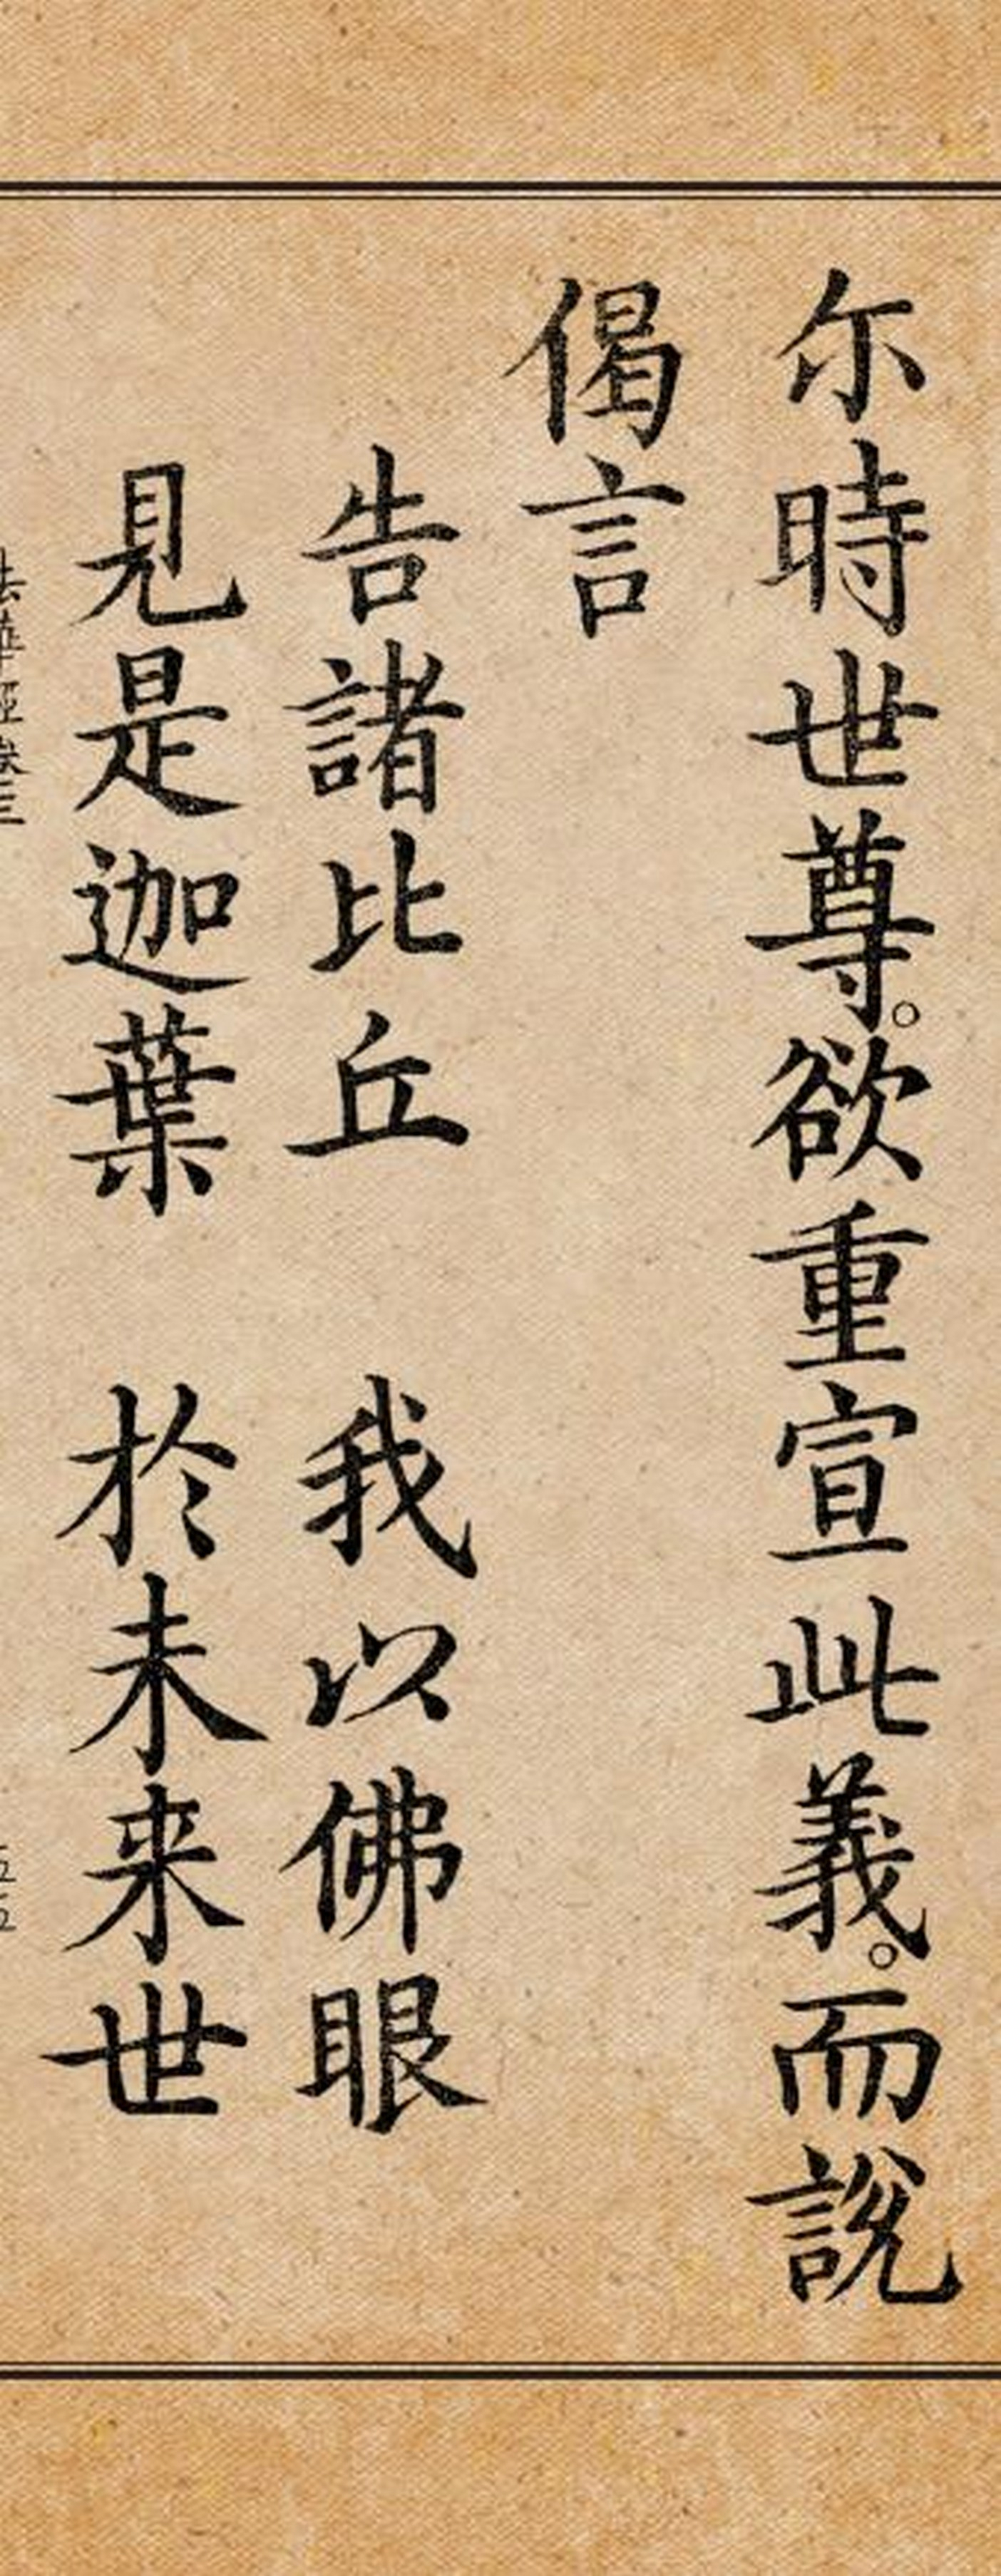 尔時世尊。欲重宣此義。而說
偈言
告諸比丘　我以佛眼
見是迦葉　於未来世
法華經卷三
五五